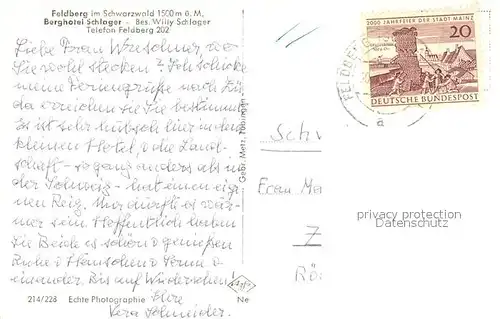 Feldberg im Schwarzwald 1500 m ü. M.
Berghotel Schlager - Bes. Willy Schlager
Telefon Feldberg 202
Liebe Frau
Sie wohl stecken? Ich schicke
meine Feriengrüße nach
da erreichen sie Sie bestimmt.
Es ist sehr hübsch hier in dem
kleinen Hotel, die Land-
schaft - so ganz anders als in
der Schweiz - hat einen eige-
nen Reiz. Nur dürfte es wär-
mer sein. Hoffentlich haben
Sie Beide es schön & genießen
Ruhe &
einander. Bis auf Wiedersehen!
Ihre
Vera Schneider.
214/228 Echte Photographie
Ne
Gebr. Metz, Tübingen
2000 JAHRFEIER DER STADT MAINZ
20
DEUTSCHE BUNDESPOST
FELDBERG
a
Schw
Frau
Z
Rö
privacy protection
Datenschutz